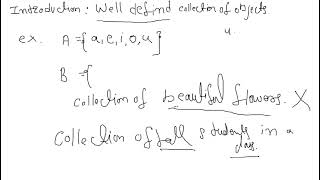 Introduction: Well defind collection of objects
u.
ex. A = {a, e, i, o, u}
B = {
collection of beautiful flowers. X
Collection of tall students in a
class.